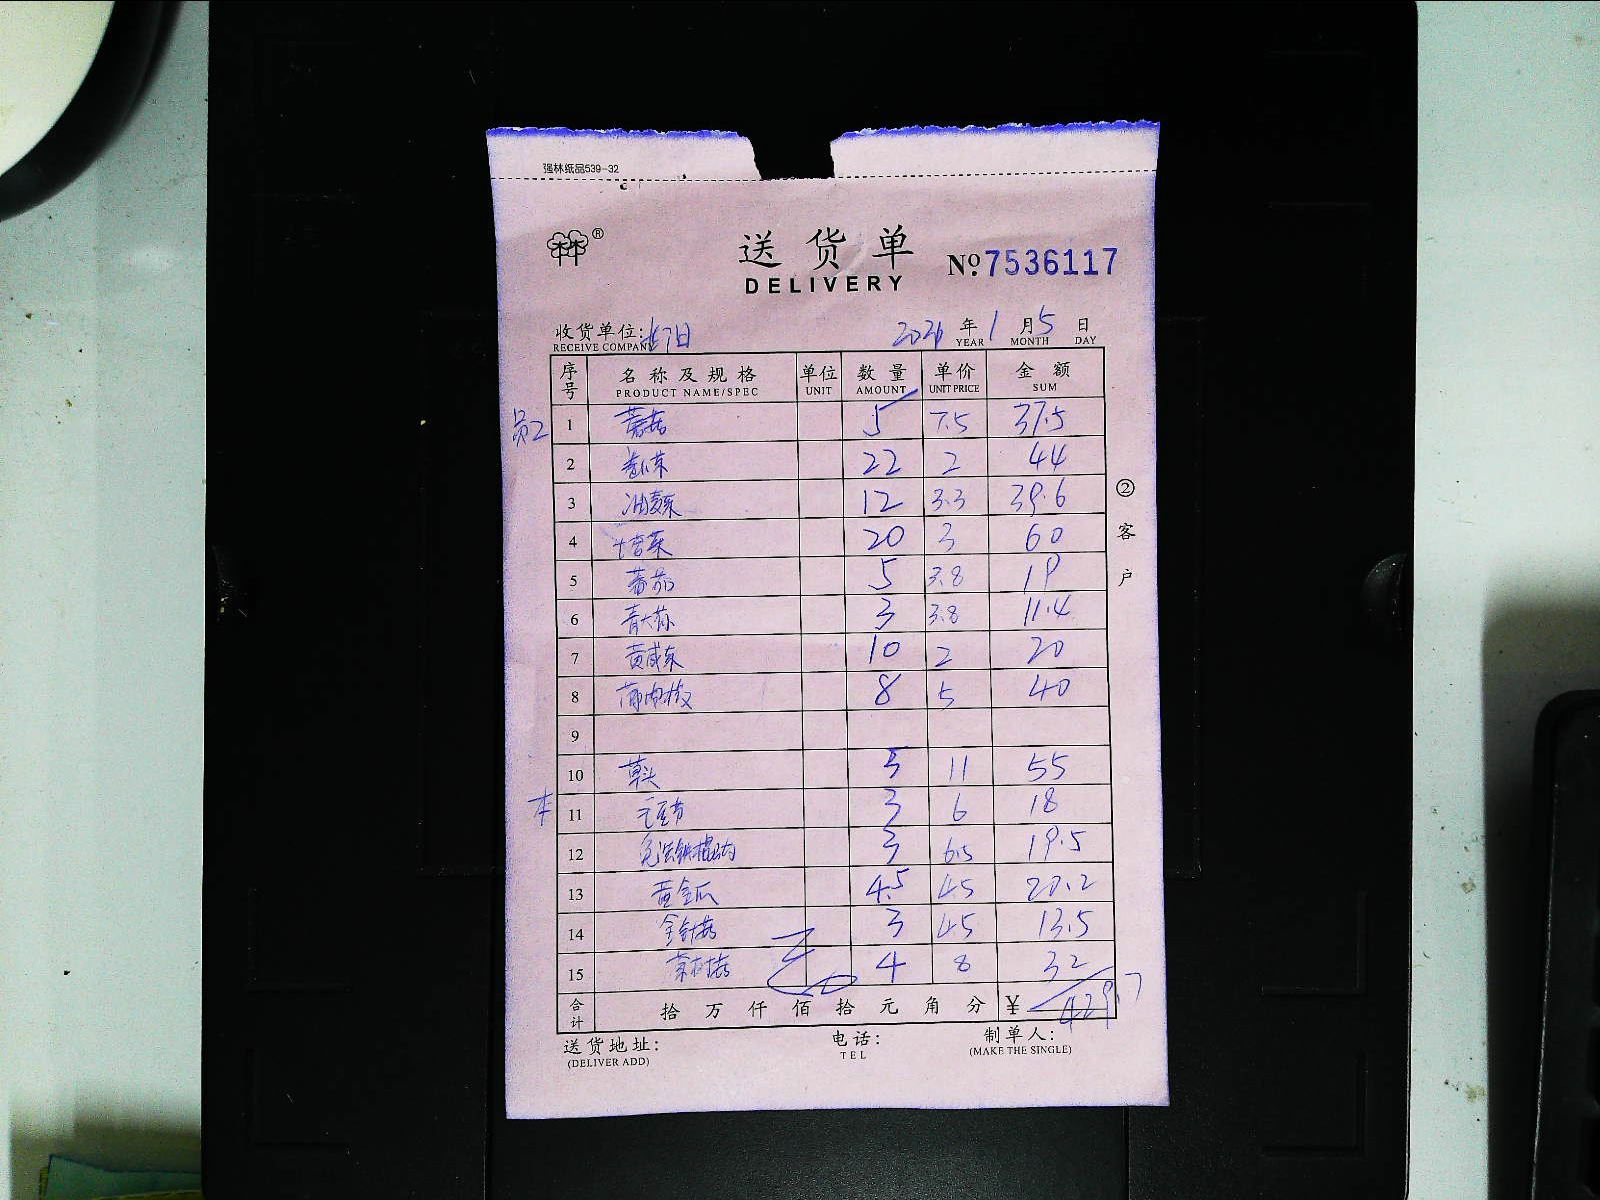 强林纸品539-32
送货单
DELIVERY
№7536117
收货单位:
RECEIVE COMPANY
2026年1月5日
YEAR MONTH DAY
序号 名称及规格 单位 数量 单价 金额
PRODUCT NAME/SPEC UNIT AMOUNT UNIT PRICE SUM
员工
1 蘑菇 5 7.5 37.5
2 22 2 44
3 油麦菜 12 3.3 39.6
4 20 3 60
5 番茄 5 3.8 19
6 3 3.8 11.4
7 10 2 20
8 8 5 40
9
10 草头 5 11 55
11 毛豆节 3 6 18
12 3 6.5 19.5
13 黄金瓜 4.5 4.5 20.2
14 金针菇 3 4.5 13.5
15 茶树菇 4 8 32
合计 拾万仟佰拾元角分 ¥ 429.7
②客户
送货地址: 电话: 制单人:
(DELIVER ADD) TEL (MAKE THE SINGLE)